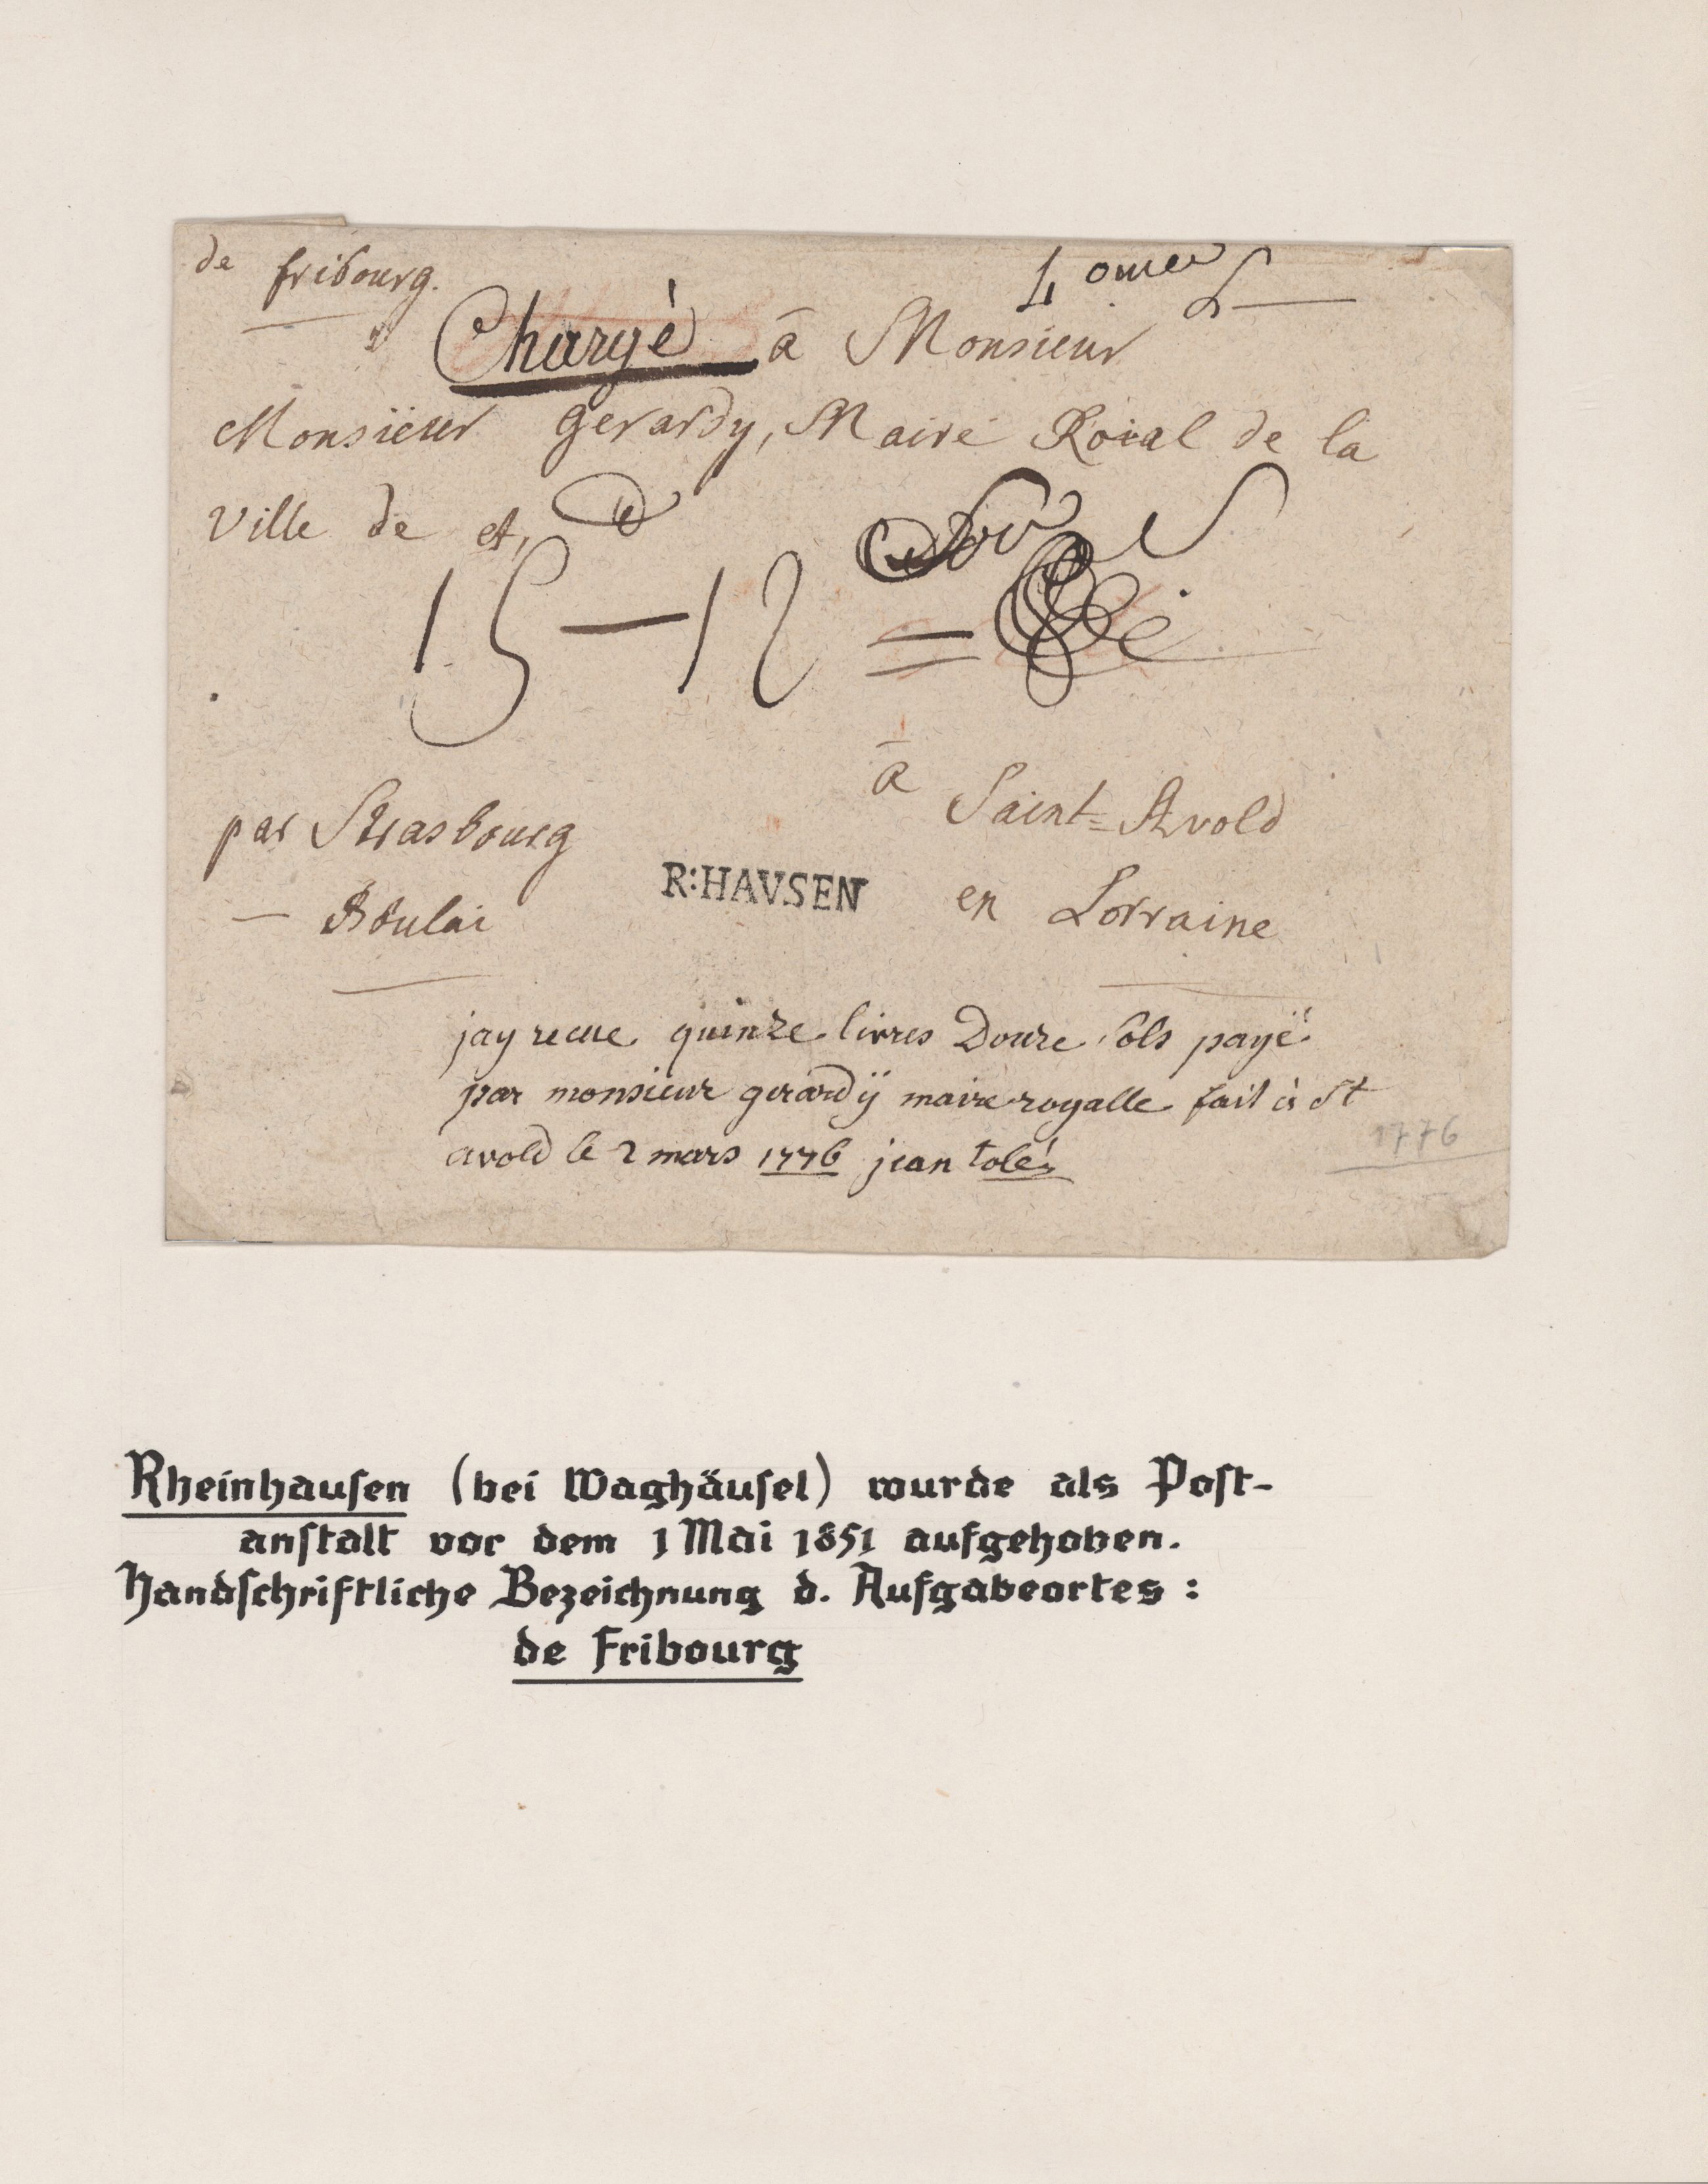 de fribourg.
4 onces
Chargé à Monsieur
Monsieur Gerardy, Maire Roïal de la
Ville de et,
15 — 12
à
Saint=Avold
par Strasbourg
R:HAVSEN
en Lorraine
— Boulai
jay recue quinze livres Douze sols payé
par monsieur gerardÿ maire royalle fait à St
avold le 2 mars 1776 jean tolé
1776
Rheinhausen (bei Waghäusel) wurde als Post-
anstalt vor dem 1 Mai 1851 aufgehoben.
Handschriftliche Bezeichnung d. Aufgabeortes :
de Fribourg